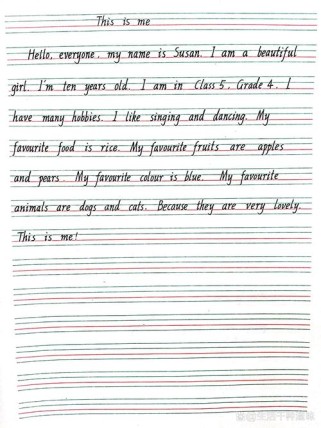 This is me
Hello, everyone, my name is Susan. I am a beautiful
girl. I'm ten years old. I am in Class 5, Grade 4. I
have many hobbies. I like singing and dancing. My
favourite food is rice. My favourite fruits are apples
and pears. My favourite colour is blue. My favourite
animals are dogs and cats. Because they are very lovely.
This is me!